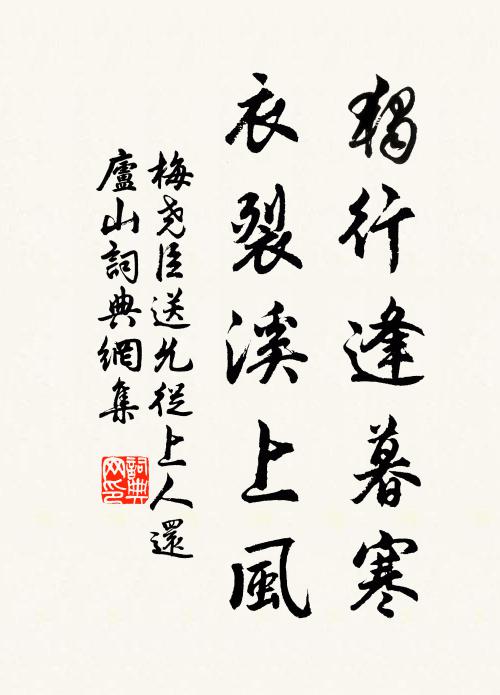 獨行逢暮寒
衣裂溪上風
梅堯臣送允從上人還
廬山詞典網集
詞典
网印